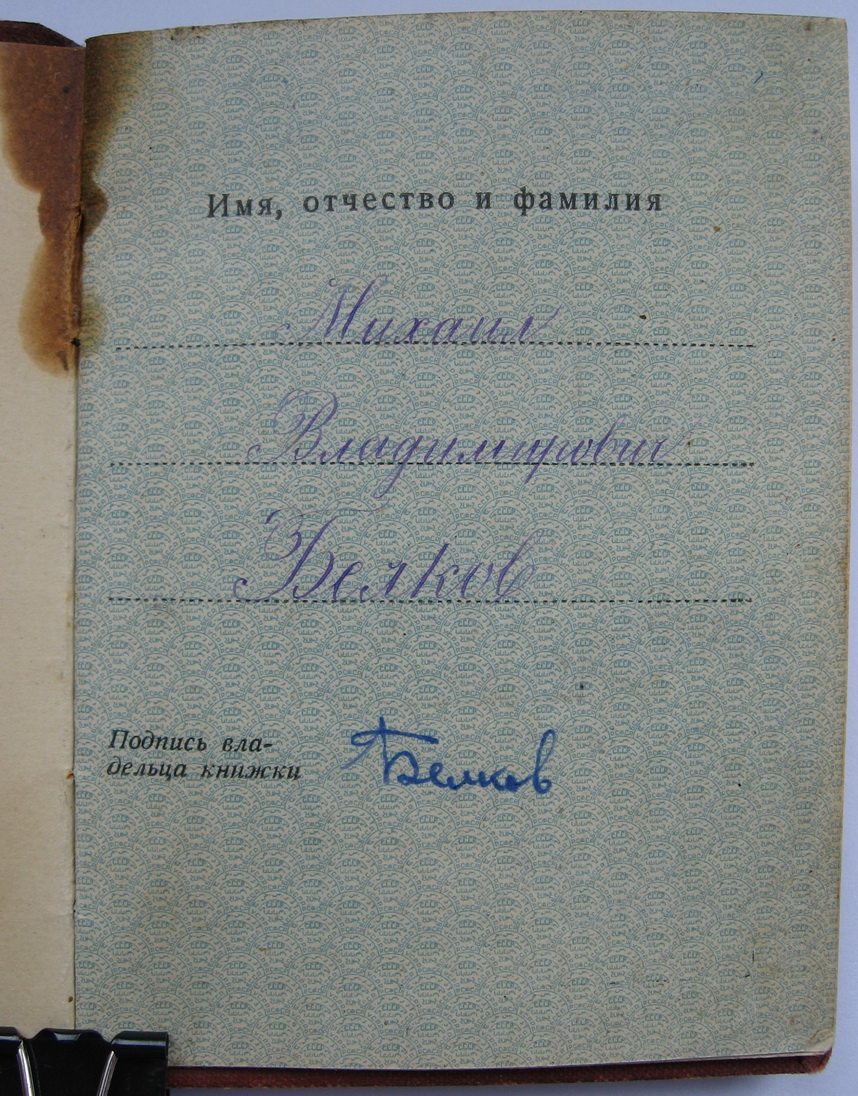 Имя, отчество и фамилия
Михаил
Владимирович
Белков
Подпись вла-
дельца книжки
Белков